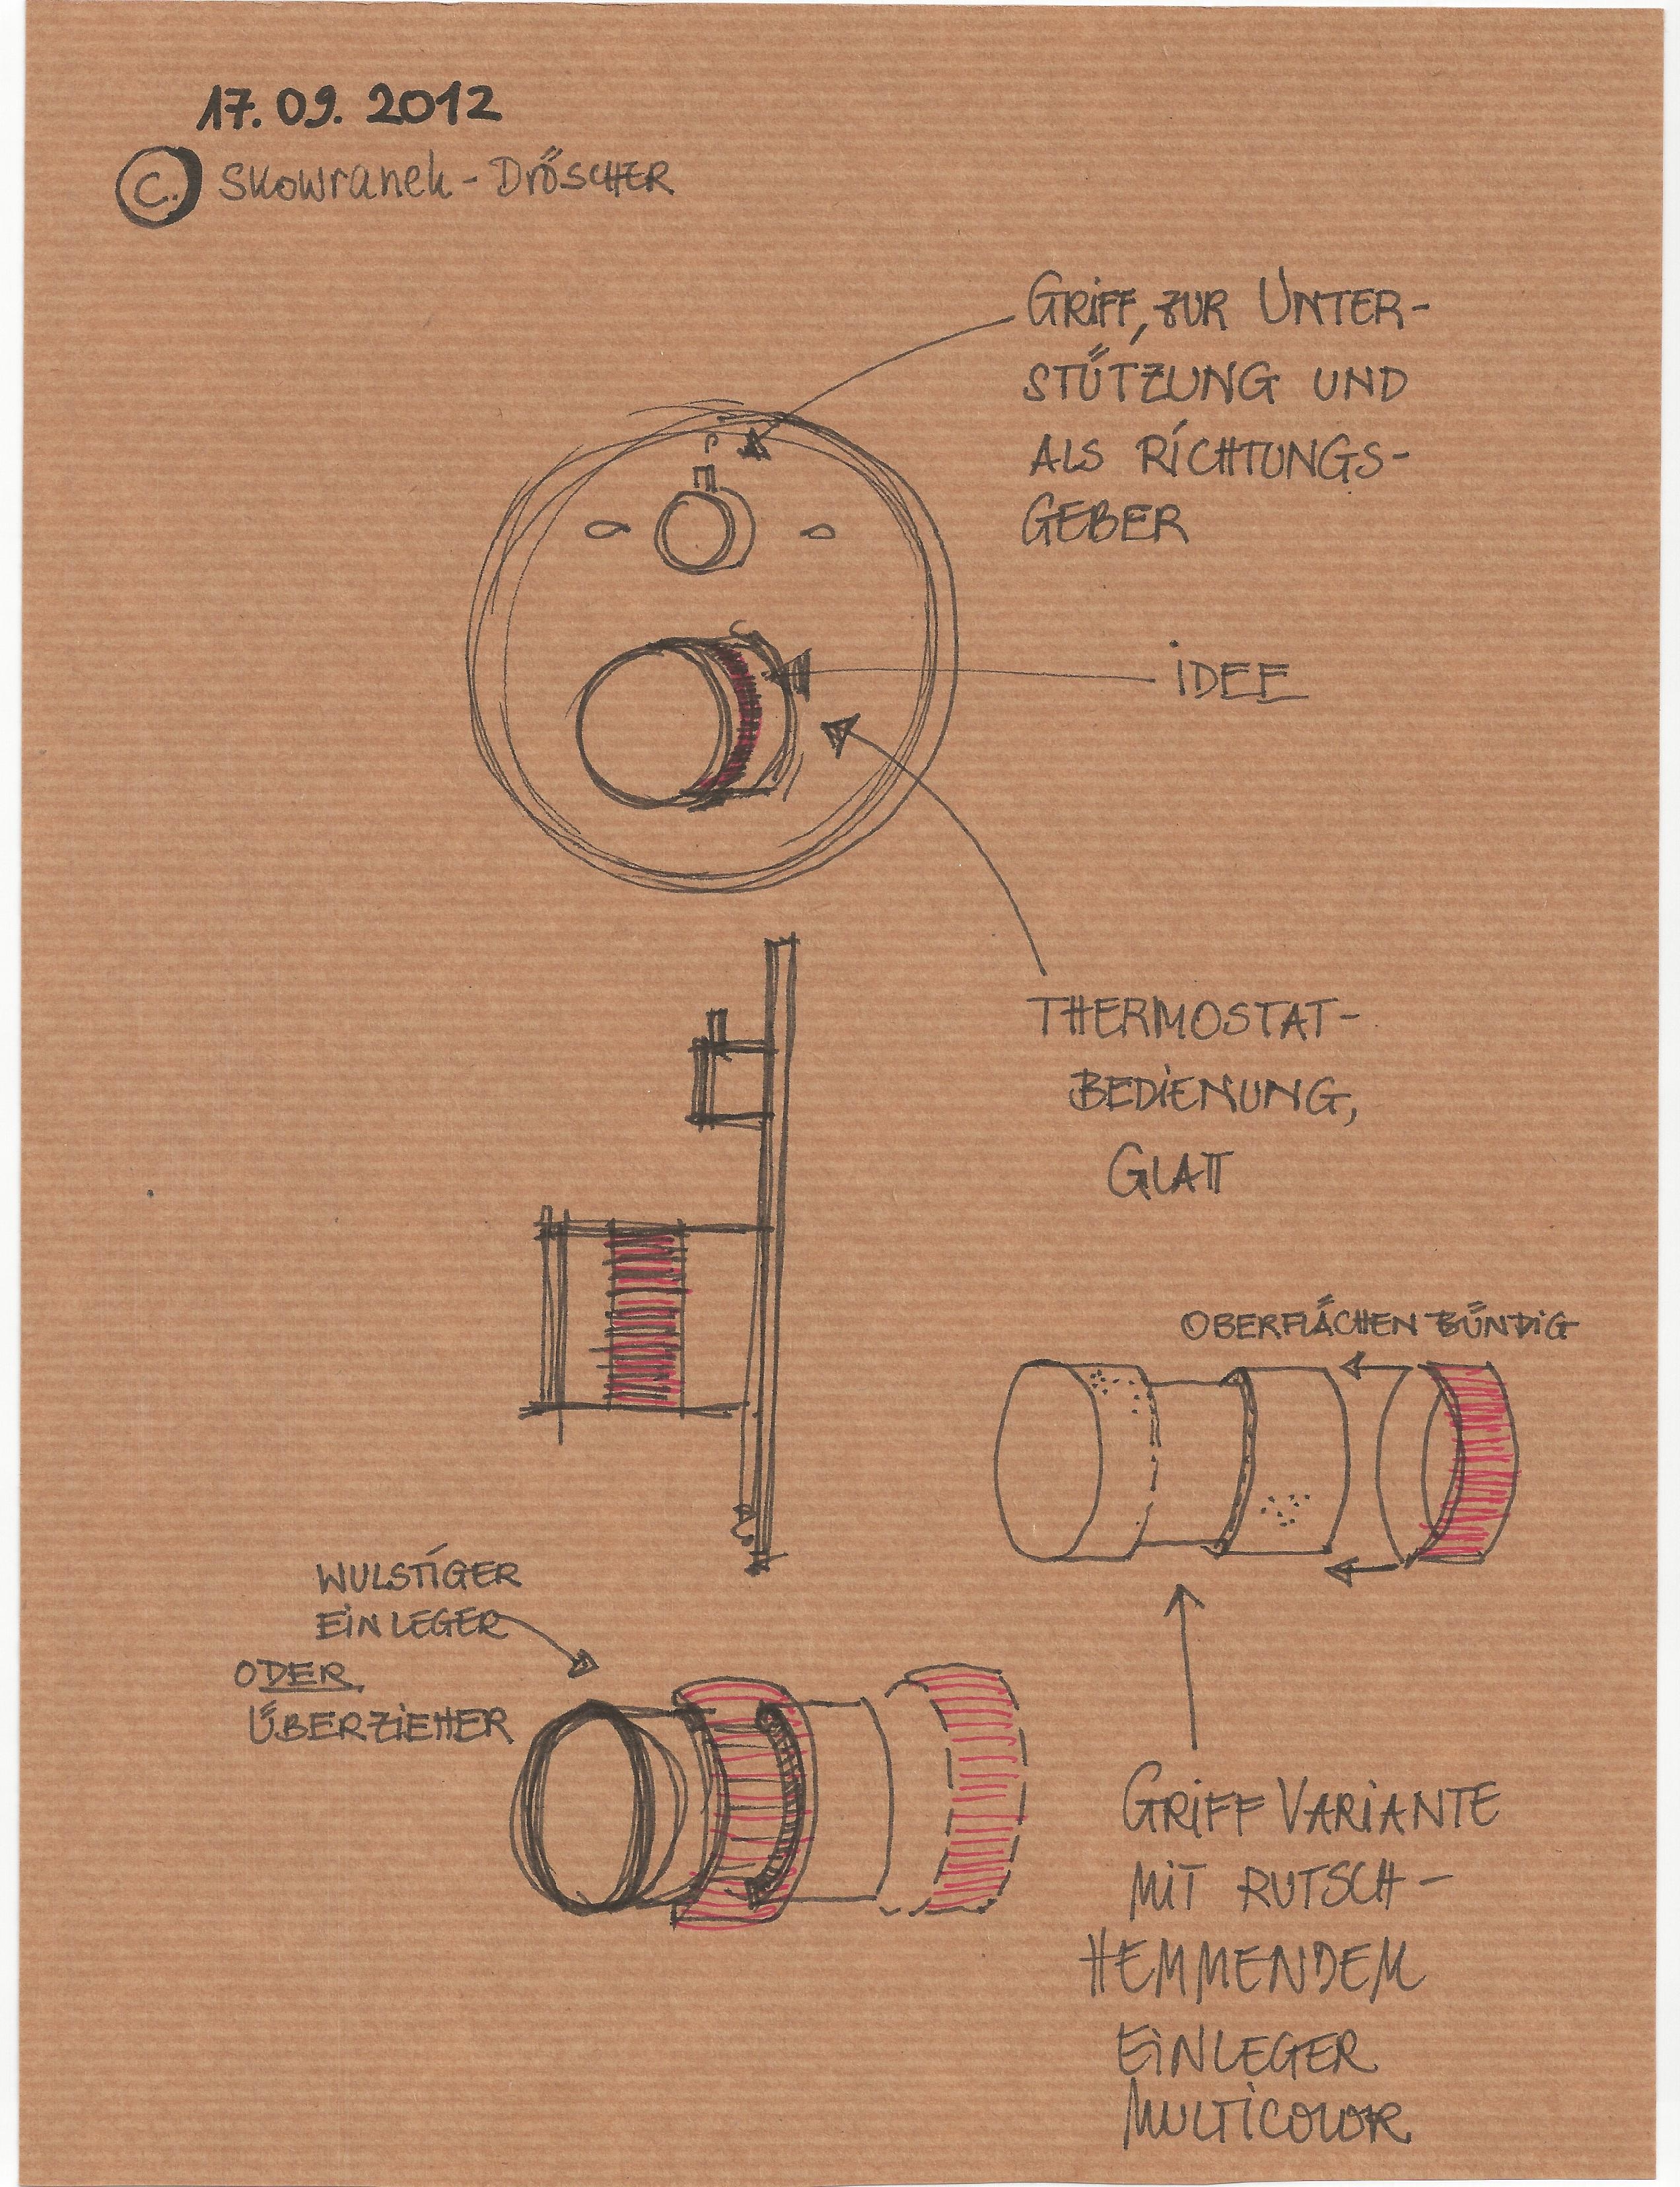 17.09.2012
C. Skowranek-DRÖSCHER
GRIFF, ZUR UNTER-
STÜTZUNG UND
ALS RICHTUNGS-
GEBER
IDEE
THERMOSTAT-
BEDIENUNG,
GLATT
OBERFLÄCHEN BÜNDIG
WULSTIGER
EINLEGER
ODER
ÜBERZIEHER
GRIFF VARIANTE
MIT RUTSCH-
HEMMENDEM
EINLEGER
MULTICOLOR